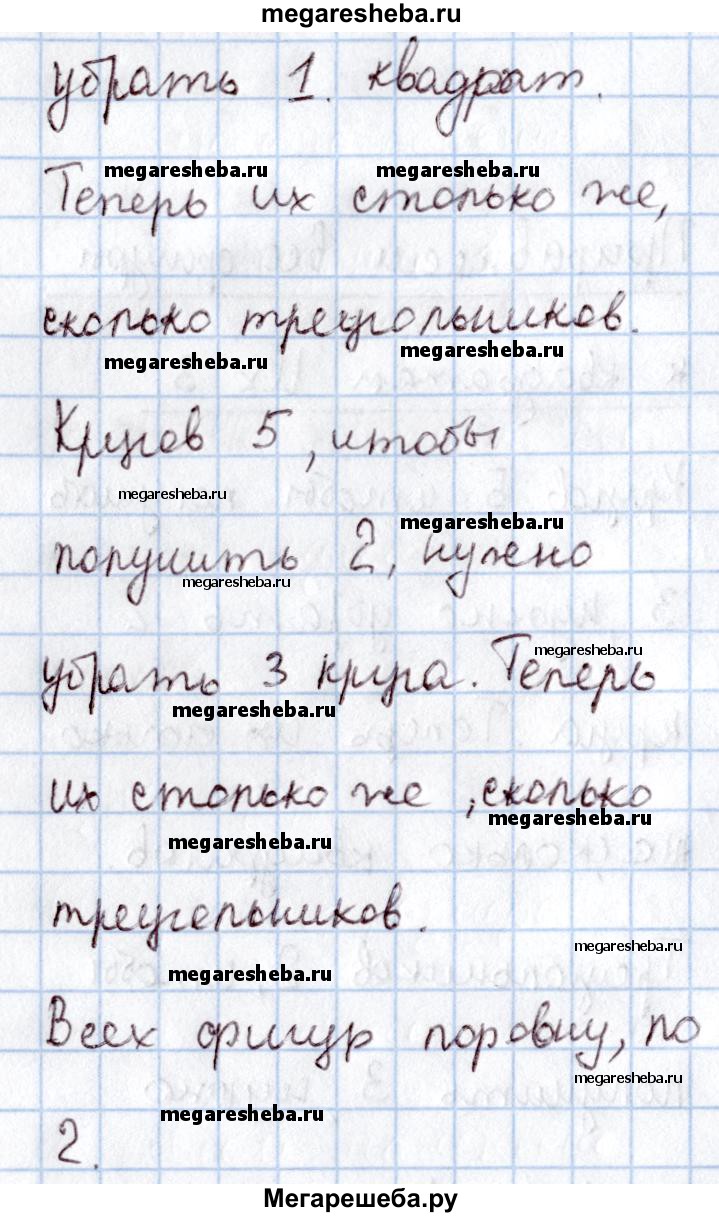 megaresheba.ru
убрать 1. квадрат.
megaresheba.ru megaresheba.ru
Теперь их столько же,
сколько треугольников.
megaresheba.ru megaresheba.ru
Кругов 5, чтобы
megaresheba.ru
megaresheba.ru
получить 2, нужно
megaresheba.ru
megaresheba.ru
убрать 3 круга. Теперь
megaresheba.ru
их столько же, сколько
megaresheba.ru
megaresheba.ru
треугольников.
megaresheba.ru
megaresheba.ru
Всех фигур поровну, по
megaresheba.ru
megaresheba.ru
2.
Мегарешеба.ру